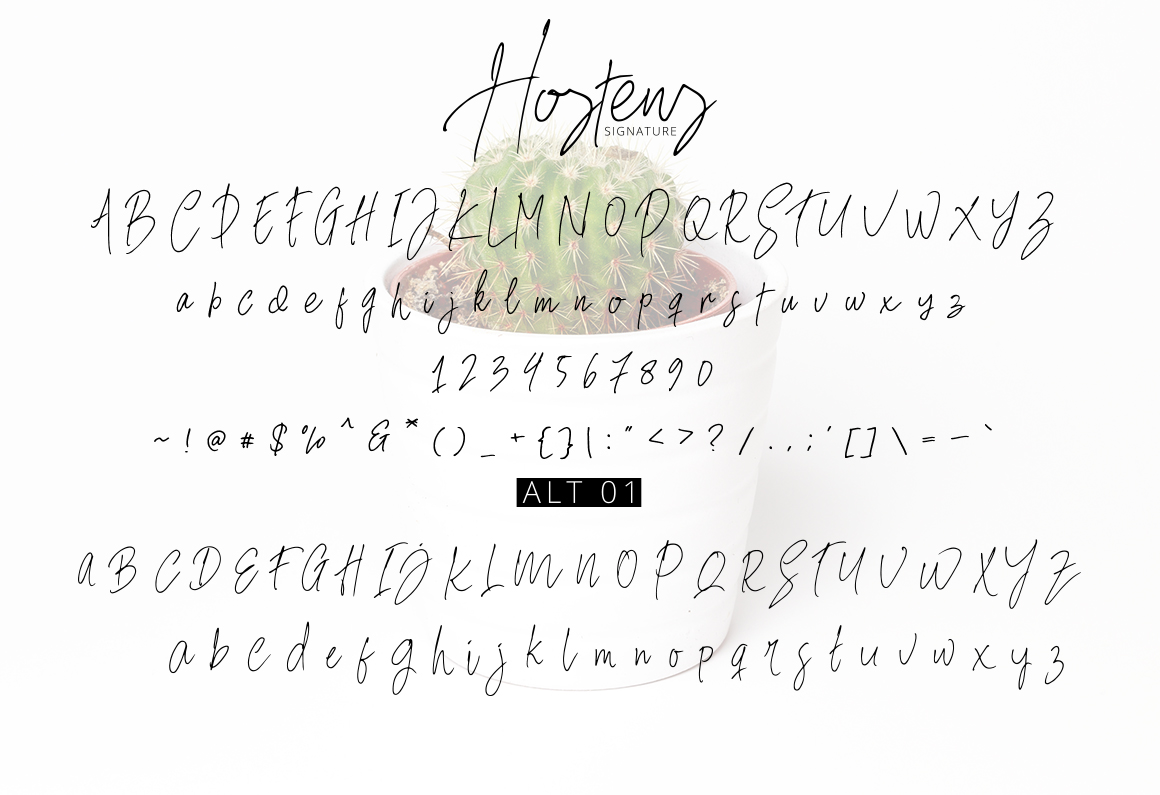 Hostens
SIGNATURE
A B C D E F G H I J K L M N O P Q R S T U V W X Y Z
a b c d e f g h i j k l m n o p q r s t u v w x y z
1 2 3 4 5 6 7 8 9 0
~ ! @ # $ % ^ & * ( ) _ + { } | : " < > ? / . , ; ' [ ] \ = – `
ALT 01
a B C D E F G H I J K L m n O P Q R S T U V W X Y Z
a b c d e f g h i j k l m n o p q r s t u v w x y z